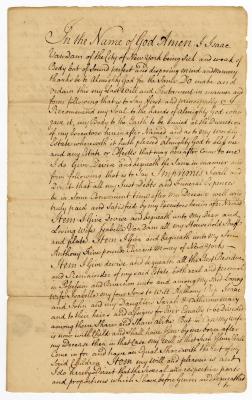 In the Name of God Amen. I Isaac
Vandam of the City of New York being Sick and weak of
Body but of Sound perfect and disposing mind and memory
thanks be to Almighty God for the Same Do make and
ordain this my Last Will and Testament in manner and
form following that is to Say first and principally
Recommend my Soul to the hands of Almighty God who
gave it, my Body to the Earth to be buried at the Discretion
of my Executors herein after Named and as to my worldly
Estate wherewith it hath pleased Almighty God to bless me
and any Estate or Effects that may hereafter come to me
I do Give Devise and bequeath the Same in manner and
form following that is to Say Imprimis I will and
that all my Just Debts and Funeral Expences
be in Some Convenient time after my Decease well and
truly paid and Satisfied by my Executors herein after Named
Item I Give Devise and bequeath unto my Dear and
Loving Wife Isabella Van Dam all my Household Stuff
and plate Item I Give and Bequeath unto my
Anthony five pounds Current Money of New York
Item I Give devise and bequeath all the Rest Residue
and Remainder of my said Estate both real and personal
in Possession and Remainder unto and among my Said Loving
Wife Isabella my four Sons to wit Anthony Isaac
and John and my Daughters Sarah & Catherine
and to their heirs and assigns for Ever Equally to be divided
among them Share and Share alike But in case my Wife
is now with Child and Shall have Issue by me born after
my Decease then in that Case my will is that Such
Come in for and have an Equal Share with the rest of my
Said Children Item my will and pleasure is and
I do hereby direct that the Several and respective parts
and proportions which I have before given and bequeathed